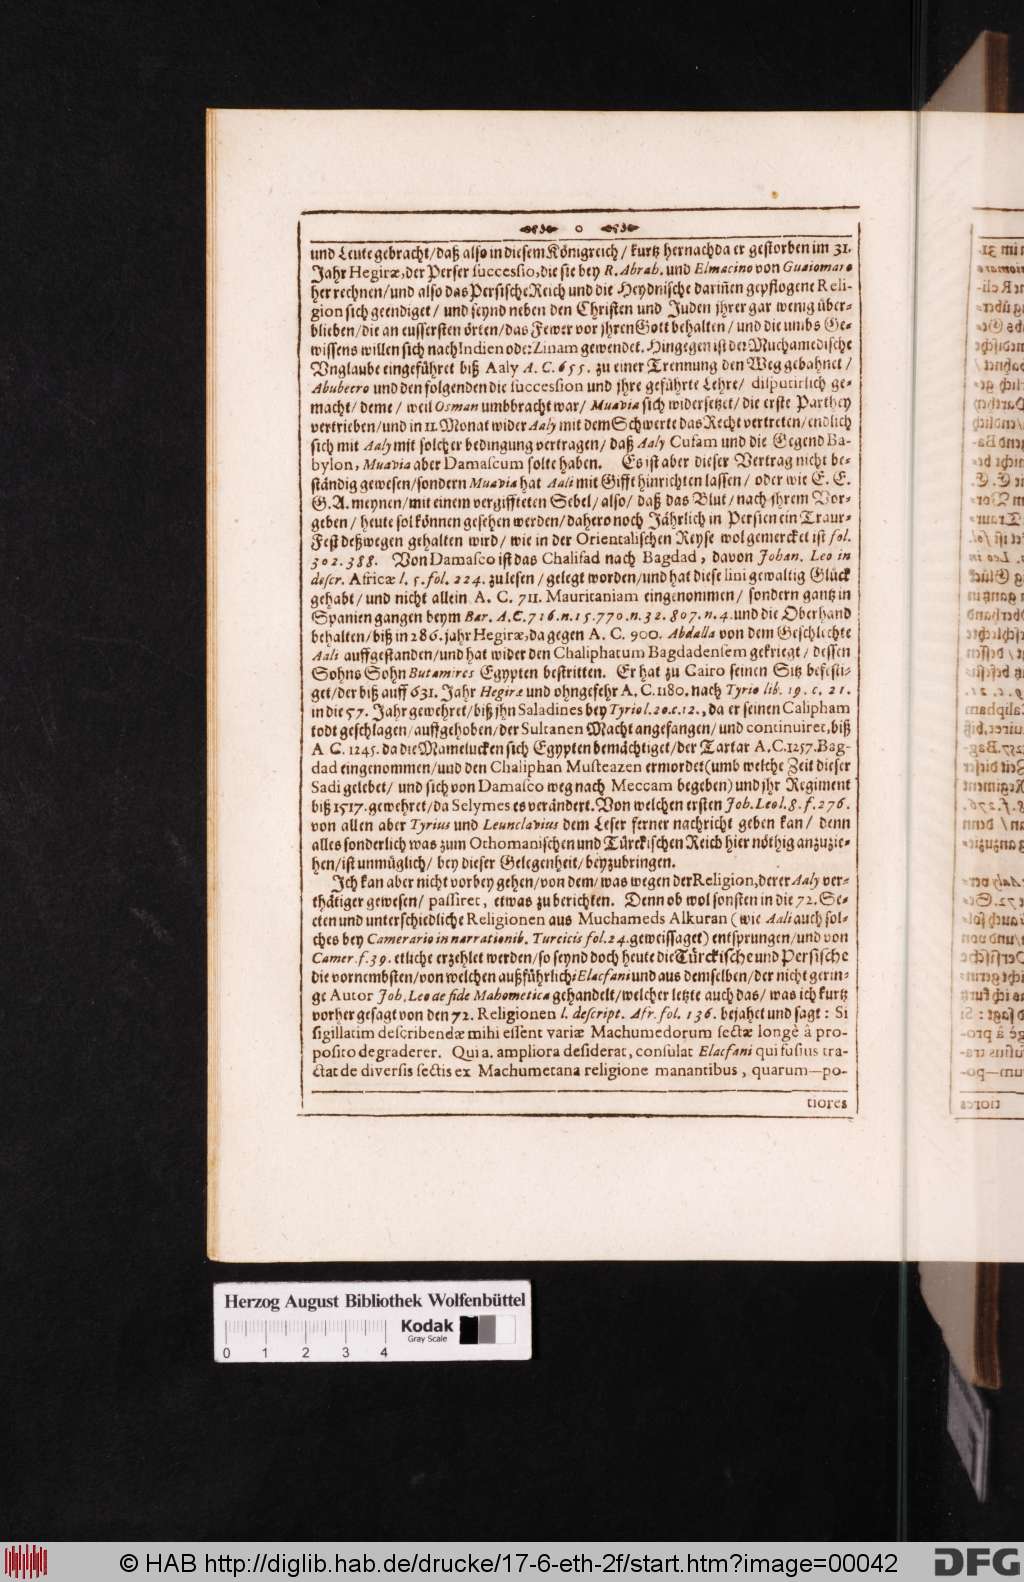 und Leute gebracht/ daß also in diesem Königreich/ kurtz hernach da er gestorben im 31.
Jahr Hegiræ, der Perser successio, die sie bey R. Abrah. und Elmacino von Guaiomaro
her rechnen/ und also das Persische Reich und die Heydnische dariñen gepflogene Reli-
gion sich geendiget/ und seynd neben den Christen und Juden jhrer gar wenig über-
blieben/ die an eussersten örten/ das Fewer vor jhren Gott behalten/ und die umbs Ge-
wissens willen sich nach Indien oder Zinam gewendet. Hingegen ist der Muchamedische
Vnglaube eingeführet biß Aaly A. C. 655. zu einer Trennung den Weg gebahnet/
Abubecro und den folgenden die succession und jhre geführte Lehre/ disputirlich ge-
macht/ deme/ weil Osman umbbracht war/ Muavia sich widersetzet/ die erste Parthey
vertrieben/ und in 11. Monat wider Aaly mit dem Schwerte das Recht vertreten/ endlich
sich mit Aaly mit solcher bedingung vertragen/ daß Aaly Cufam und die Gegend Ba-
bylon, Muavia aber Damascum solte haben. Es ist aber dieser Vertrag nicht be-
ständig gewesen/ sondern Muavia hat Aali mit Gifft hinrichten lassen/ oder wie E. E.
G. A. meynen/ mit einem vergiffteten Sebel/ also/ daß das Blut/ nach jhrem Vor-
geben/ heute sol können gesehen werden/ dahero noch Jährlich in Persien ein Traur-
Fest deßwegen gehalten wird/ wie in der Orientalischen Reyse wol gemercket ist fol.
302. 388. Von Damasco ist das Chalifad nach Bagdad, davon Johan. Leo in
descr. Africæ l. 5. fol. 224. zu lesen/ gelegt worden/ und hat diese lini gewaltig Glück
gehabt/ und nicht allein A. C. 711. Mauritaniam eingenommen/ sondern gantz in
Spanien gangen beym Bar. A. C. 716. n. 15. 770. n. 32. 807. n. 4. und die Oberhand
behalten/ biß in 286. jahr Hegiræ, da gegen A. C. 900. Abdalla von dem Geschlechte
Aali auffgestanden/ und hat wider den Chaliphatum Bagdadensem gekriegt/ dessen
Sohns Sohn Butamires Egypten bestritten. Er hat zu Cairo seinen Sitz befesti-
get/ der biß auff 631. Jahr Hegiræ und ohngefehr A. C. 1180. nach Tyrio lib. 19. c. 21.
in die 57. Jahr gewehret/ biß jhn Saladines bey Tyrio l. 20. c. 12., da er seinen Calipham
todt geschlagen/ auffgehoben/ der Sultanen Macht angefangen/ und continuiret, biß
A C. 1245. da die Mamelucken sich Egypten bemächtiget/ der Tartar A. C. 1257. Bag-
dad eingenommen/ und den Chaliphan Musteazen ermordet (umb welche Zeit dieser
Sadi gelebet/ und sich von Damasco weg nach Meccam begeben) und jhr Regiment
biß 1517. gewehret/ da Selymes es verändert. Von welchen ersten Joh. Leo l. 8. f. 276.
von allen aber Tyrius und Leunclavius dem Leser ferner nachricht geben kan/ denn
alles sonderlich was zum Othomanischen und Türckischen Reich hier nöthig anzuzie-
hen/ ist unmüglich/ bey dieser Gelegenheit/ beyzubringen.
Ich kan aber nicht vorbey gehen/ von dem/ was wegen der Religion, derer Aaly ver-
thätiger gewesen/ passiret, etwas zu berichten. Denn ob wol sonsten in die 72. Se-
cten und unterschiedliche Religionen aus Muchameds Alkuran (wie Aali auch sol-
ches bey Camerario in narrationib. Turcicis fol. 24. geweissaget) entsprungen/ und von
Camer. f. 39. etliche erzehlet werden/ so seynd doch heute die Türckische und Persische
die vornembsten/ von welchen außführlich: Elacfani und aus demselben/ der nicht gerin-
ge Autor Joh. Leo de fide Mahometica gehandelt/ welcher letzte auch das/ was ich kurtz
vorher gesagt von den 72. Religionen l. descript. Afr. fol. 136. bejahet und sagt: Si
sigillatim describendæ mihi essent variæ Machumedorum sectæ longè â pro-
posito degraderer. Qui a. ampliora desiderat, consulat Elacfani qui fusius tra-
ctat de diversis sectis ex Machumetana religione manantibus, quarum—po-
tiores
Herzog August Bibliothek Wolfenbüttel
Kodak
Gray Scale
0 1 2 3 4
© HAB http://diglib.hab.de/drucke/17-6-eth-2f/start.htm?image=00042
DFG